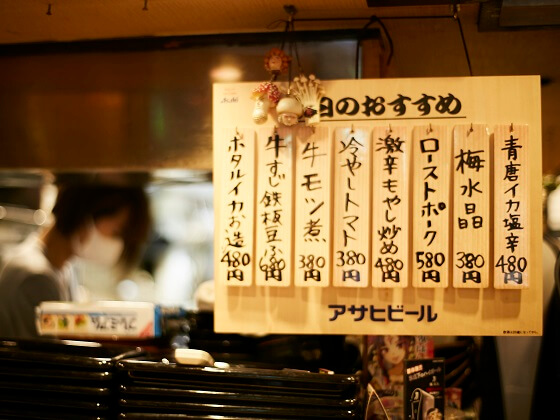 Asahi
日のおすすめ
青唐イカ塩辛 480円
梅水晶 380円
ローストポーク 580円
激辛もやし炒め 480円
冷やしトマト 380円
牛モツ煮 380円
牛すじ鉄板豆腐 680円
ホタルイカお造 480円
アサヒビール